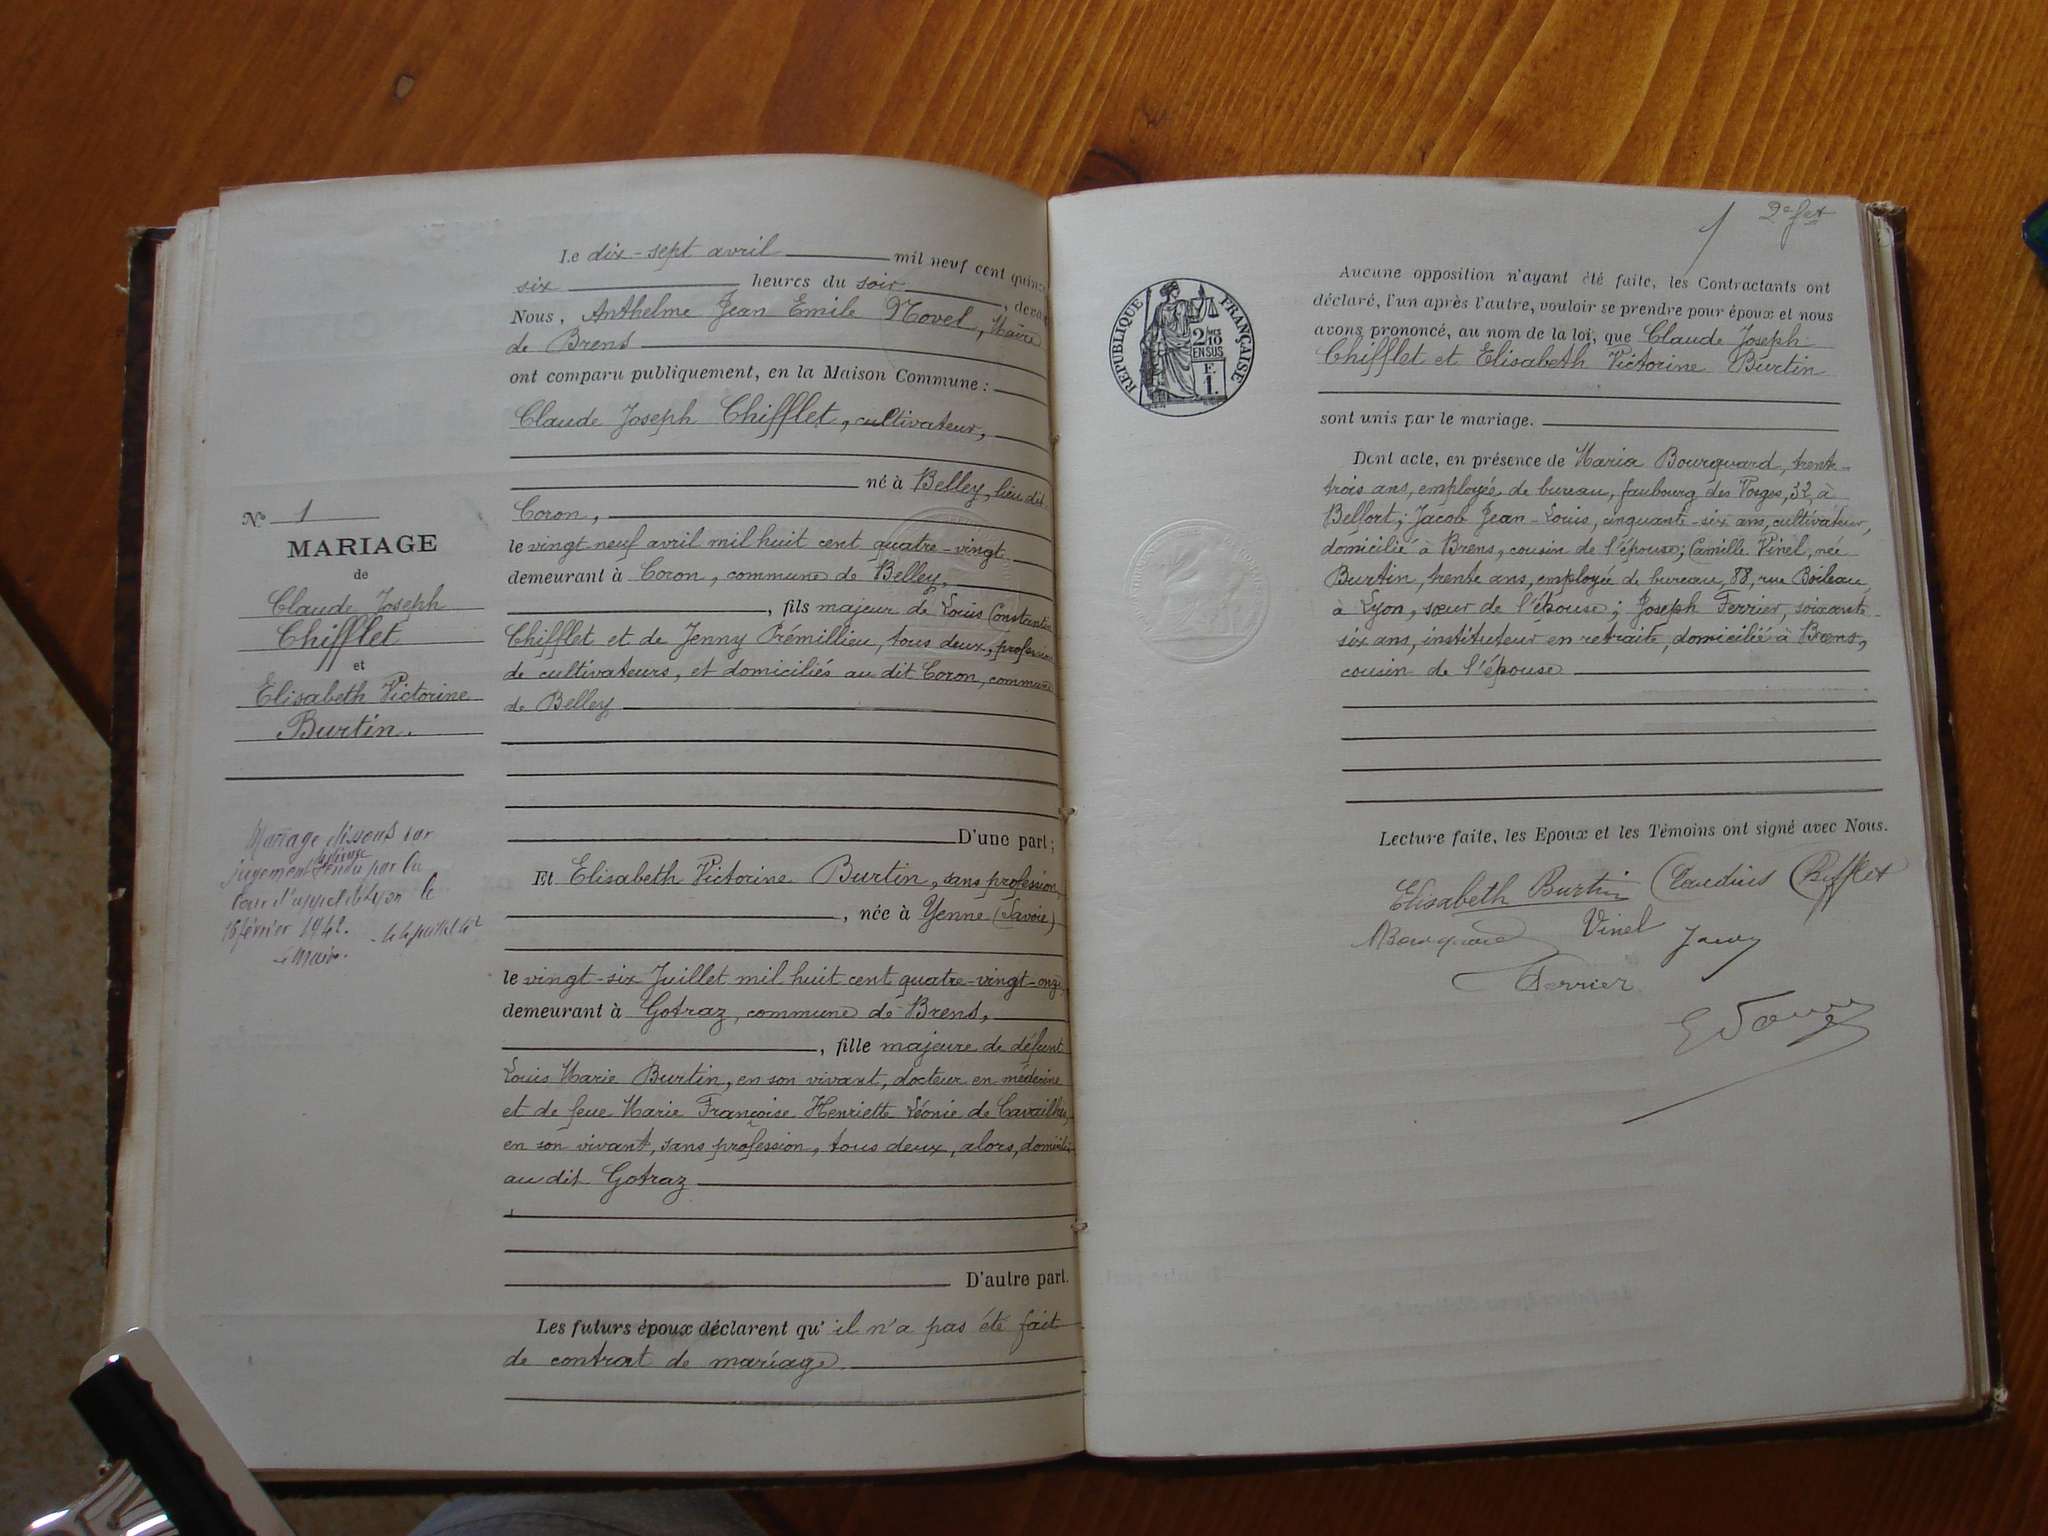 Le dix-sept avril mil neuf cent quinze
six heures du soir, devant
Nous, Anthelme Jean Emile Novel, Maire
de Brens
ont comparu publiquement, en la Maison Commune :
Claude Joseph Chifflet, cultivateur,
né à Belley, lieu dit
Coron,
le vingt neuf avril mil huit cent quatre-vingt
demeurant à Coron, commune de Belley,
, fils majeur de Louis Constantin
Chifflet et de Jenny Prémillieu, tous deux, profession
de cultivateurs, et domiciliés au dit Coron, commune
de Belley
D'une part;
Et Elisabeth Victorine Burtin, sans profession
, née à Yenne (Savoie)
le vingt-six Juillet mil huit cent quatre-vingt-onze
demeurant à Gotraz, commune de Brens,
, fille majeure de défunt
Louis Marie Burtin, en son vivant, docteur en médecine
et de feue Marie Françoise Henriette Léonie de Cavailhès,
en son vivant, sans profession, tous deux, alors, domiciliés
au dit Gotraz
D'autre part.
Les futurs époux déclarent qu'il n'a pas été fait
de contrat de mariage
N° 1
MARIAGE
de
Claude Joseph
Chifflet
et
Elisabeth Victorine
Burtin.
Mariage dissous par
jugement de divorce rendu par la
Cour d'appel de Lyon le
16 février 1942.
le Maire.
2e fet
RÉPUBLIQUE FRANÇAISE
2/10
EN SUS
F.
1.
Aucune opposition n'ayant été faite, les Contractants ont
déclaré, l'un après l'autre, vouloir se prendre pour époux et nous
avons prononcé, au nom de la loi, que Claude Joseph
Chifflet et Elisabeth Victorine Burtin
sont unis par le mariage.
Dont acte, en présence de Maria Bourquard, trente-
trois ans, employée de bureau, faubourg des Vosges, 32, à
Belfort; Jacob Jean-Louis, cinquante-six ans, cultivateur,
domicilié à Brens, cousin de l'épouse; Camille Vinel, née
Burtin, trente ans, employée de bureau, 88, rue Boileau
à Lyon, sœur de l'épouse; Joseph Ferrier, soixante-
six ans, instituteur en retraite, domicilié à Brens,
cousin de l'épouse
Lecture faite, les Epoux et les Témoins ont signé avec Nous.
Elisabeth Burtin Claudius Chifflet
MBourquard Vinel Jacob
Ferrier